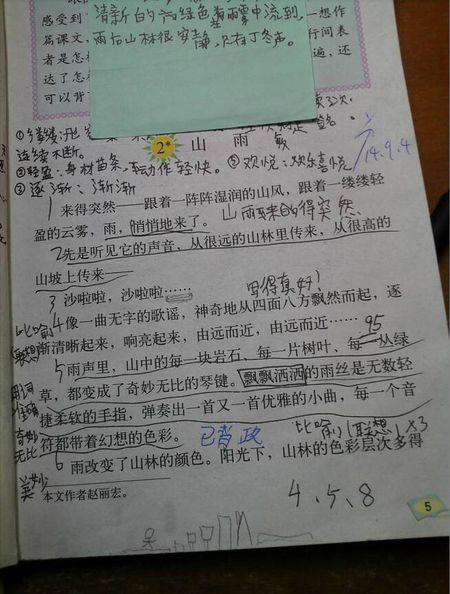 感受到
清新的绿色雾中流到,
一想作
篇课文,
雨后山林很安静,只有丁冬声。
行间表
者是怎
遍,还
达了怎
可以背
连续不断。
2*
山 雨
②轻盈:身材苗条,动作轻快。⑤欢悦:欢乐喜悦
14.9.4
③逐渐:渐渐
1来得突然——跟着一阵阵湿润的山风,跟着一缕缕轻
盈的云雾,雨,悄悄地来了。山雨来的得突然
2先是听见它的声音,从很远的山林里传来,从很高的
山坡上传来——
写得真好!
3沙啦啦,沙啦啦……
比喻
4像一曲无字的歌谣,神奇地从四面八方飘然而起,逐
联想
渐清晰起来,响亮起来,由远而近,由远而近……
95
5雨声里,山中的每一块岩石、每一片树叶、每一丛绿
用词
草,都变成了奇妙无比的琴键。飘飘洒洒的雨丝是无数轻
准确
捷柔软的手指,弹奏出一首又一首优雅的小曲,每一个音
奇妙
无比
符都带着幻想的色彩。
已背
比喻(联想)×3
6雨改变了山林的颜色。阳光下,山林的色彩层次多得
美妙
本文作者赵丽宏。
4、5、8
5